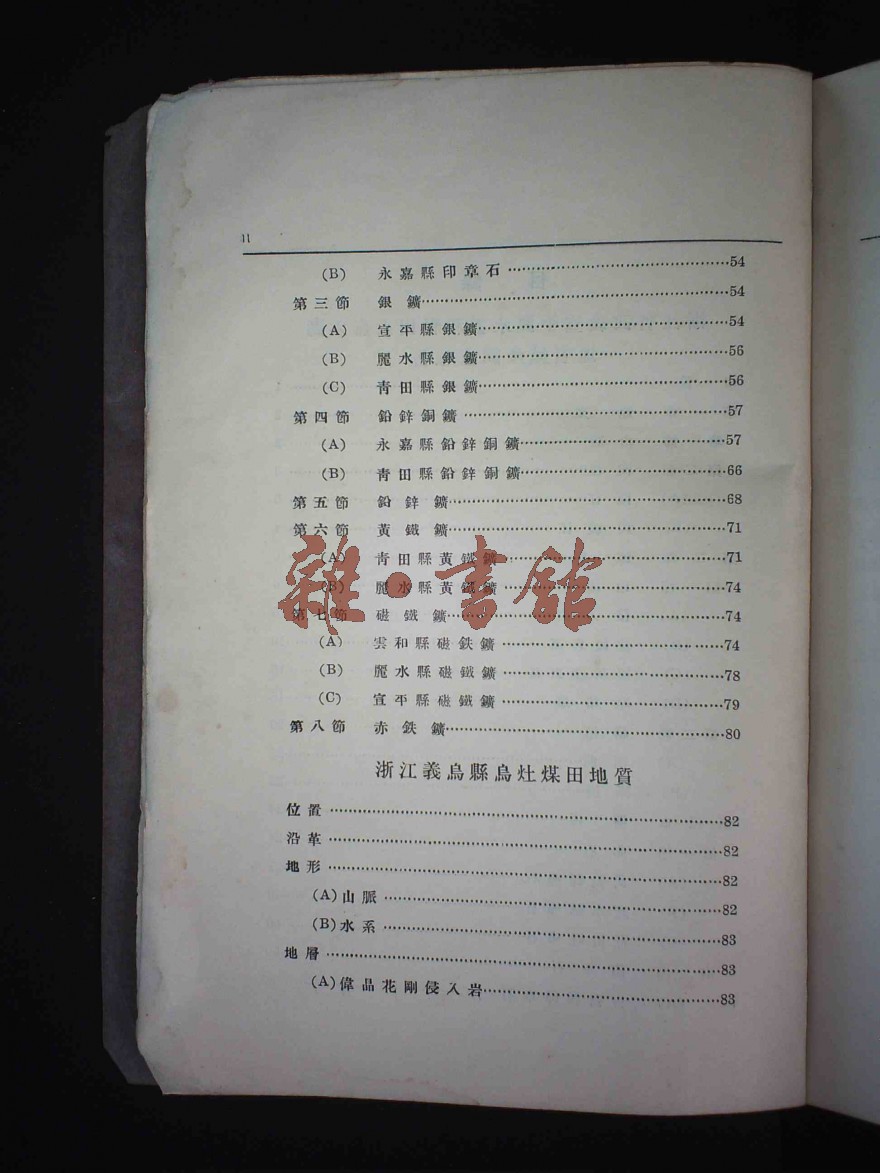 II
(B) 永嘉縣印章石……54
第三節 銀鑛……54
(A) 宣平縣銀鑛……54
(B) 麗水縣銀鑛……56
(C) 青田縣銀鑛……56
第四節 鉛鋅銅鑛……57
(A) 永嘉縣鉛鋅銅鑛……57
(B) 青田縣鉛鋅銅鑛……66
第五節 鉛鋅鑛……68
第六節 黃鐵鑛……71
(A) 青田縣黃鐵鑛……71
(B) 麗水縣黃鐵鑛……74
第七節 磁鐵鑛……74
(A) 雲和縣磁鉄鑛……74
(B) 麗水縣磁鐵鑛……78
(C) 宣平縣磁鐵鑛……79
第八節 赤鉄鑛……80
浙江義烏縣烏灶煤田地質
位置……82
沿革……82
地形……82
(A)山脈……82
(B)水系……83
地層……83
(A)偉晶花剛侵入岩……83
雜·書館